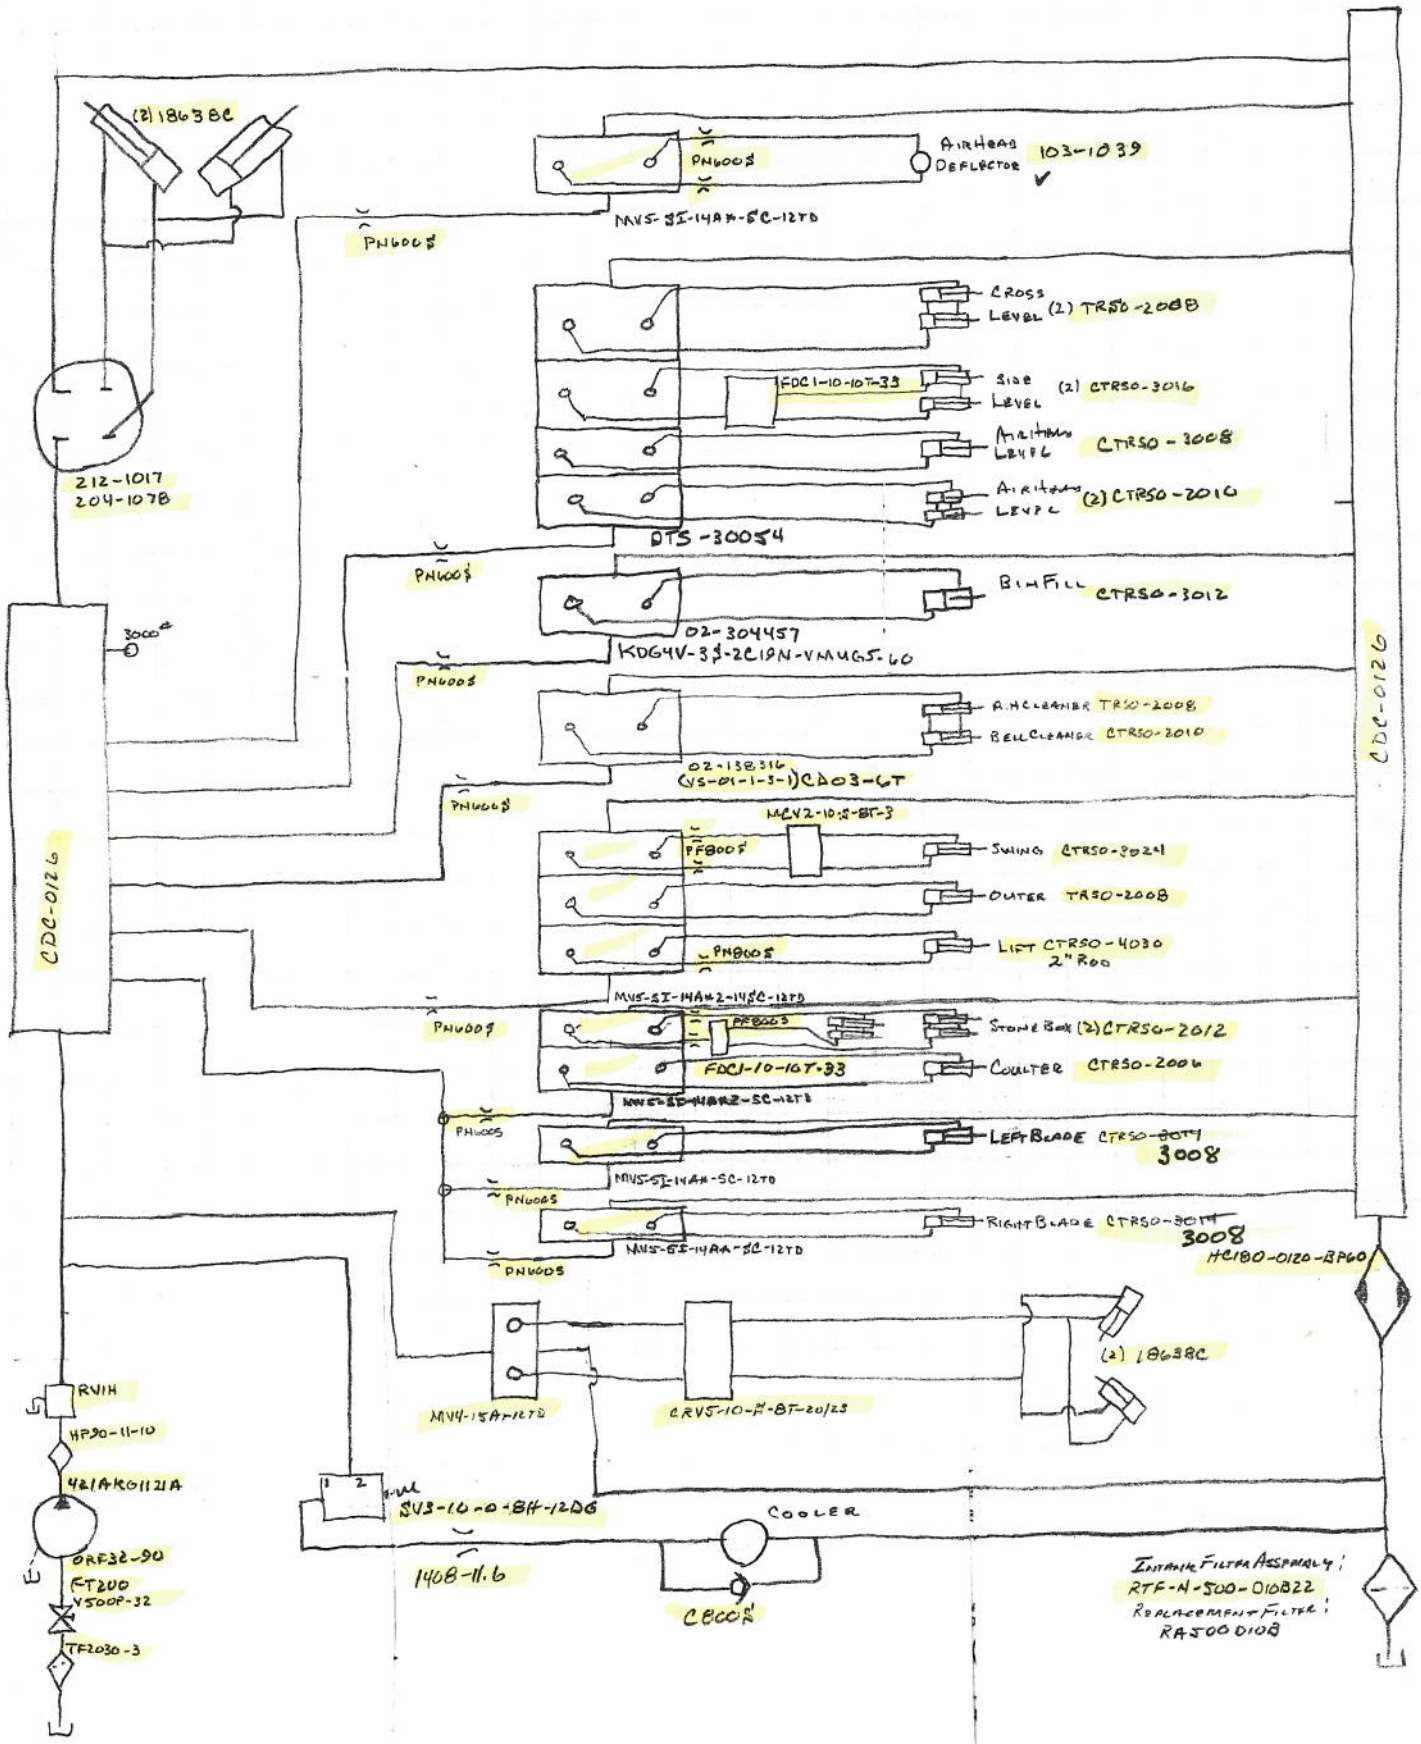 (2) 18638C
PN600S
AIRHEAD
DEFLECTOR
103-1039
MV5-SI-14A*-SC-12TD
PN600S
CROSS
LEVEL
(2) TRSO-2008
FDC1-10-10T-33
SIDE
LEVEL
(2) CTRSO-3016
AIRHEAD
LEVEL
CTRSO-3008
AIRHEAD
LEVEL
(2) CTRSO-2010
212-1017
204-1078
DTS-30054
PN600S
BINFILL
CTRSO-3012
3000#
02-304457
KDG4V-3S-2C19N-VMUG5-60
PN600S
A.H CLEANER TRSO-2008
BELL CLEANER CTRSO-2010
02-138316
(VS-01-1-3-1) CD03-6T
PN600S
MCV2-10-S-8T-3
CDC-0126
CDC-0126
PF800S
SWING CTRSO-3024
OUTER TRSO-2008
PN800S
LIFT CTRSO-4030
2" ROD
MV5-SI-14A*2-14SC-12TD
PN600S
PF800S
STONE BOX (2) CTRSO-2012
FDC1-10-10T-33
COULTER CTRSO-2006
PN600S
LEFT BLADE CTRSO-3014
3008
MV5-SI-14A*-SC-12TD
PN600S
RIGHT BLADE CTRSO-3014
3008
MV5-SI-14A*-SC-12TD
PN600S
HC180-0120-BP60
(2) 18638C
RV1H
MV4-15A-12TD
CRV5-10-F-8T-20/25
HP90-11-10
421AKG1121A
1 2
SV3-10-0-8H-12DG
COOLER
ORF32-90
FT200
V500P-32
1408-11.6
C800S
TF2030-3
INTANK FILTER ASSEMBLY:
RTF-N-500-010B22
REPLACEMENT FILTER:
RA500010B